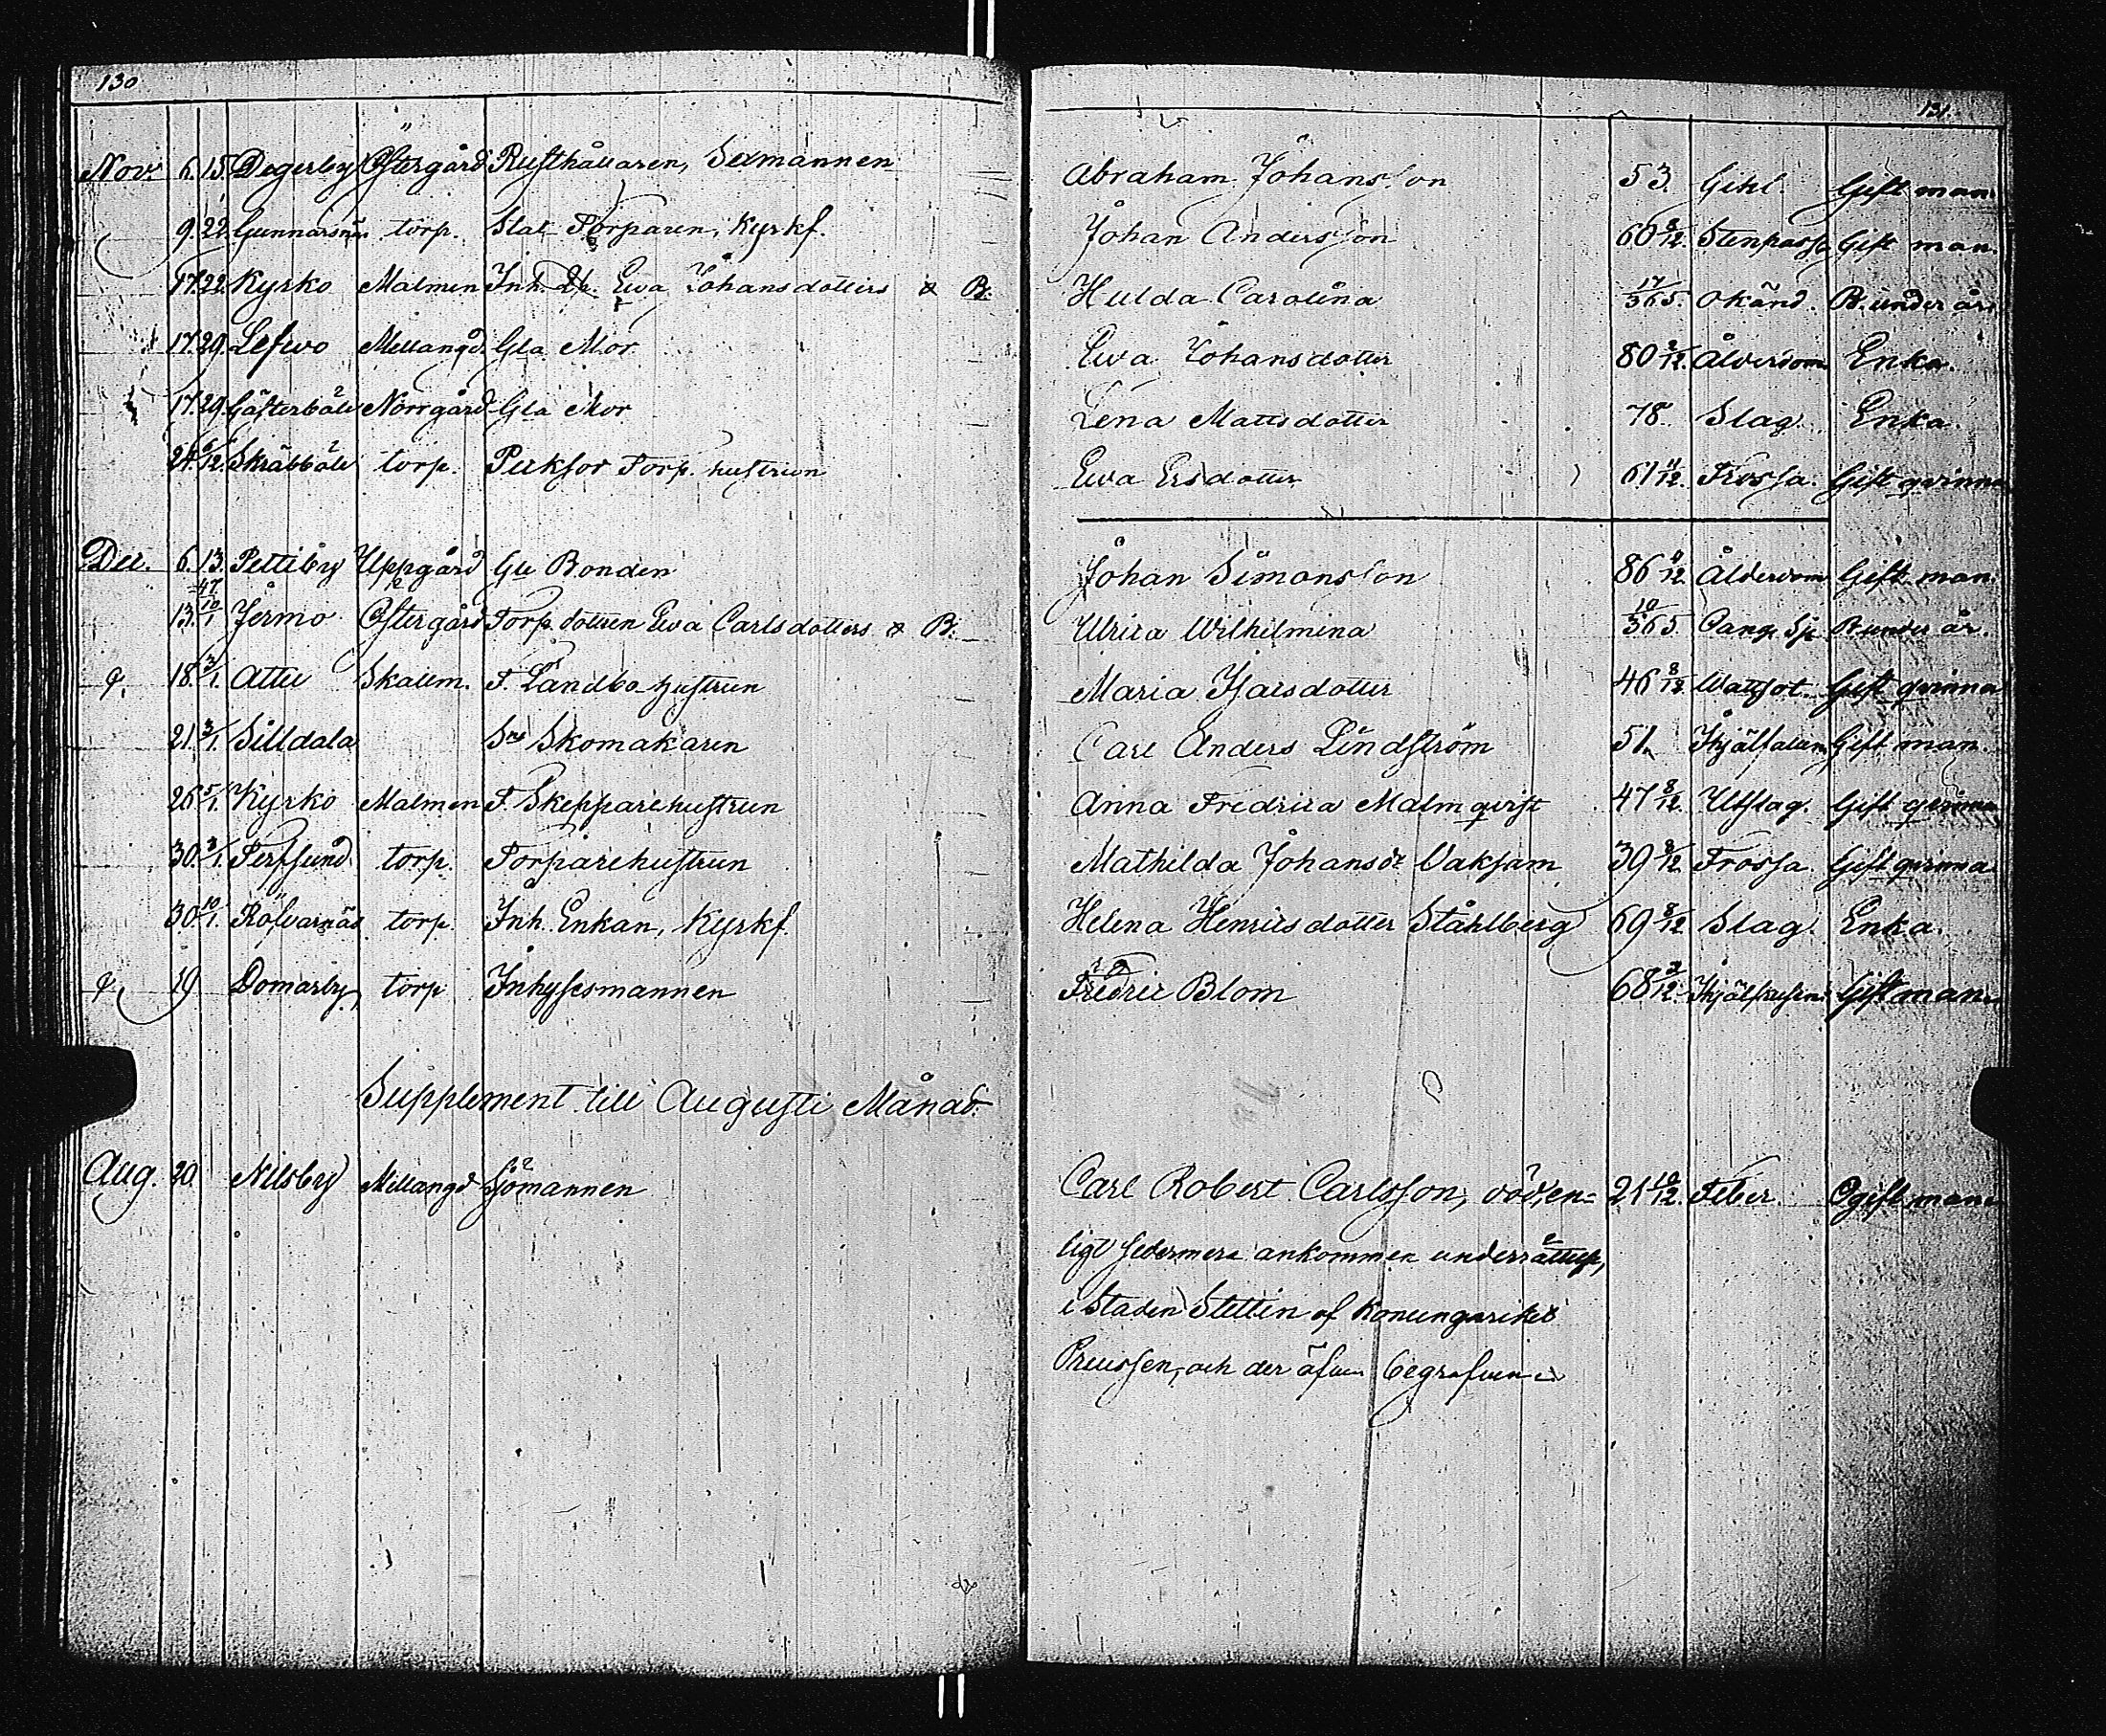 130
131.
Nov. 6. 15. Degerby Östergård Rusthållaren, Sexmannen Abraham Johansson 53. Gift man
9. 22. Gunnarsnäs torp. Stat Torparen, Kyrkf. Johan Andersson 60 8/12. Stenpassion Gift man.
17. 22. Kyrko Malmen Inh. Eva Johansdotters o B. Hulda Carolina 17/365. Okänd. B. under år
17. 29. Lefvo Mellangd. Gla Mor Eva Johansdotter 80 2/12. Ålderdom Enka.
17. 29. Gästerbäle Norrgård Gla Mor Lena Mattsdotter 78. Slag. Enka.
24. 6/12. Skräbbäle torp. Torp. hustrun Eva Ersdotter 61 11/12. Frossa. Gift qvinna
Dec. 6. 13. Pettiby Uppgård Gle Bonden Johan Simonsson 86 11/12 Ålderdom Gift man.
47
13. 10/1. Jermo Östergård Torp. dottren Eva Carlsdotters o B. Ulrica Wilhelmina 10/365 B. under år.
18. 3/1. Attu Skallm. F. Landbo hustrun Maria Isaksdotter 46 8/12 Wattsot. Gift qvinna
21. 3/1. Silldala Skomakaren Carl Anders Lindström 51. Gift man.
26 5/1. Kyrko Malmen F. Skepparehustrun Anna Fredrica Malmqvist 47 8/12. Utslag. Gift qvinna
30. 3/1. torp. Torparehustrun Mathilda Johansdr Vaksam 39 8/12 Frossa. Gift qvinna
30. 10/1. Rölvarnäs torp. Inh. Enkan, Kyrkf. Helena Henricsdotter Ståhlberg 69 8/12 Slag. Enka.
19 Domarby, torp Inhysesmannen Fredric Blom 68 2/12. Gift man.
Supplement till Augusti Månad.
Aug. 20. Nilsby Mellangd Sjömannen Carl Robert Carlsson, död, en= 21 10/12. Feber. Ogift man
ligt sedermera ankommen underrättelse,
i Staden Stettin af Konungariket
Preussen, och der äfven begrafven.